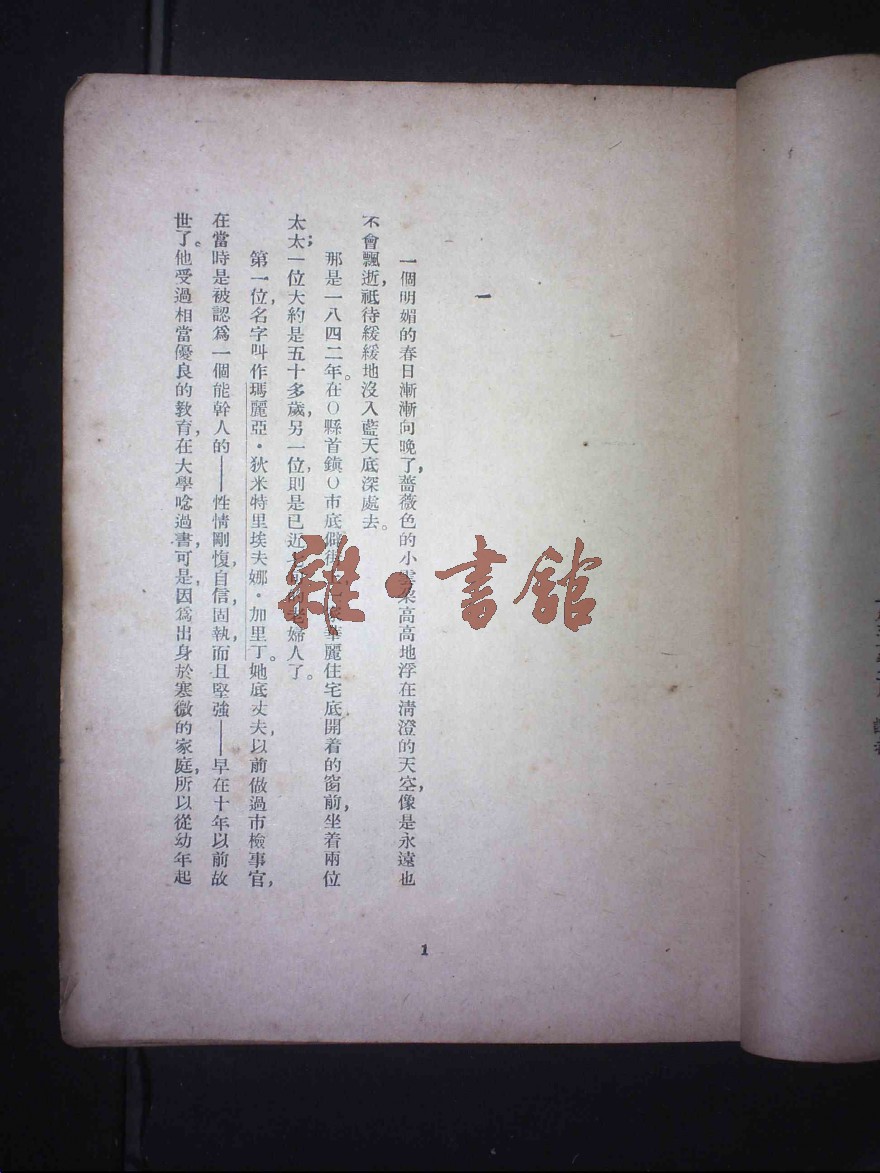 一
一個明媚的春日漸漸向晚了，薔薇色的小雲朵高高地浮在清澄的天空，像是永遠也
不會飄逝，祇待緩緩地沒入藍天底深處去。
那是一八四二年。在〇縣首鎮〇市底僻街華麗住宅底開着的窗前，坐着兩位
太太；一位大約是五十多歲，另一位則是已近老婦人了。
第一位，名字叫作瑪麗亞·狄米特里埃夫娜·加里丁。她底丈夫，以前做過市檢事官，
在當時是被認爲一個能幹人的——性情剛愎，自信，固執，而且堅強——早在十年以前故
世了。他受過相當優良的教育，在大學唸過書，可是，因爲出身於寒微的家庭，所以從幼年起
1
雜·書館